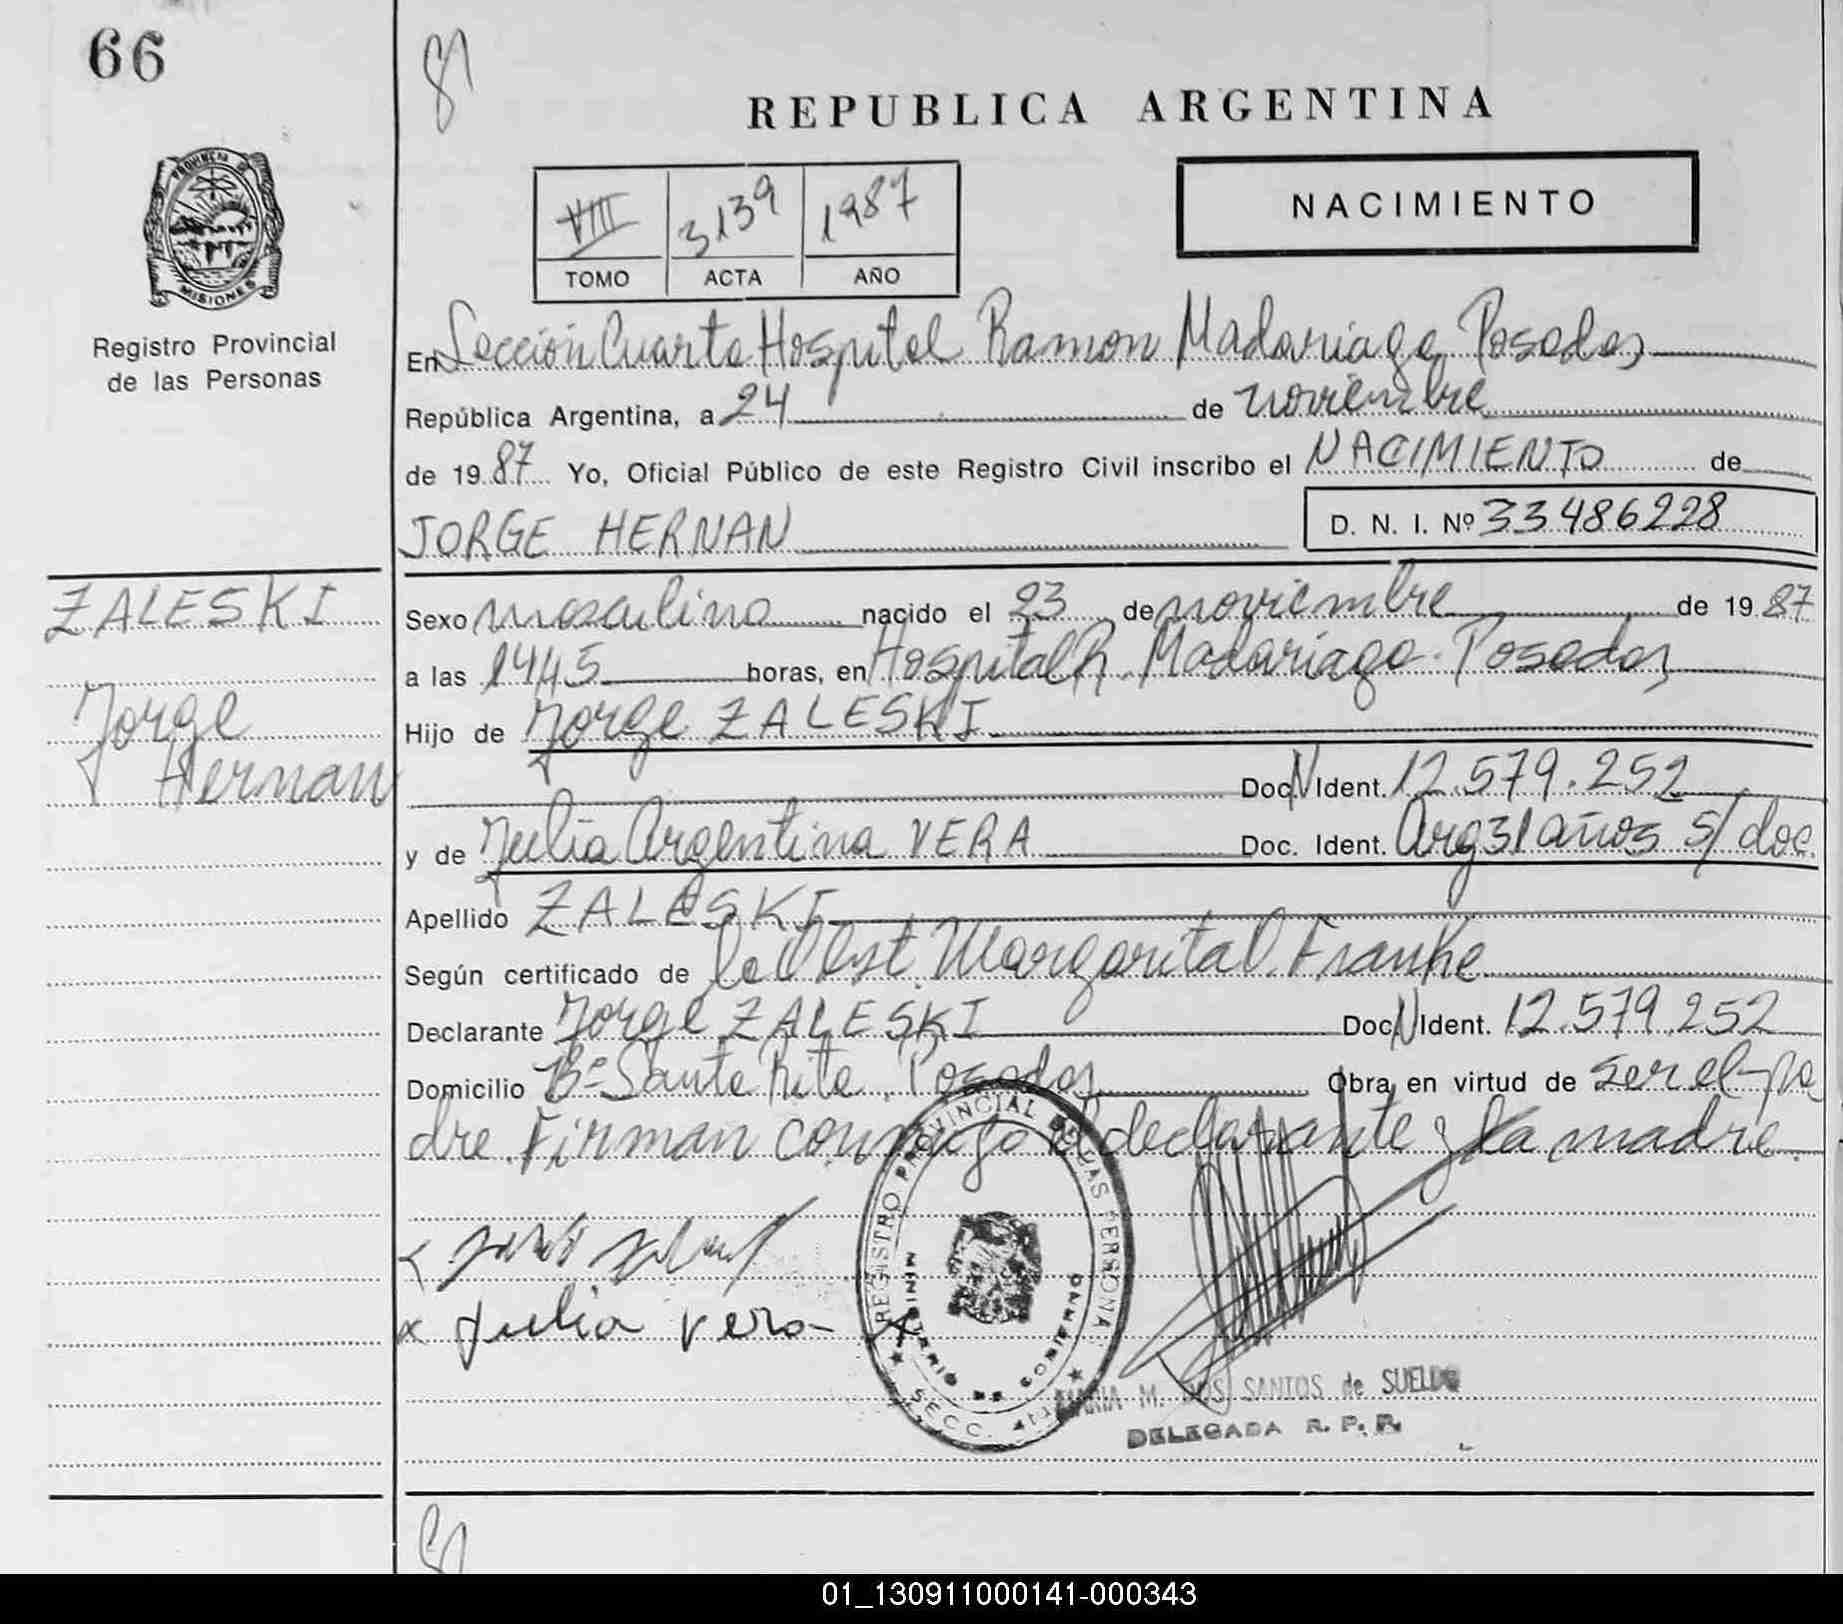 66
REPUBLICA ARGENTINA
PROVINCIA DE
MISIONES
Registro Provincial
de las Personas
VIII 3139 1987
TOMO ACTA AÑO
NACIMIENTO
En Sección Cuarta Hospital Ramon Madariaga Posadas
República Argentina, a 24 de noviembre
de 19 87 Yo, Oficial Público de este Registro Civil inscribo el NACIMIENTO de
JORGE HERNAN D. N. I. Nº 33486228
ZALESKI
Jorge
Hernan
Sexo masculino nacido el 23 de noviembre de 19 87
a las 1445 horas, en Hospital R. Madariaga. Posadas
Hijo de Jorge ZALESKI
Doc N Ident. 12.579.252
y de Julia Argentina VERA Doc. Ident. Arg 31 años s/doc.
Apellido ZALESKI
Según certificado de la Obst. Margarita Franke
Declarante Jorge ZALESKI Doc N Ident. 12.579.252
Domicilio Bº Santa Rita. Posadas Obra en virtud de ser el pa
dre. Firman conmigo el declarante y la madre.
x Julia vera
REGISTRO PROVINCIAL DE LAS PERSONAS
MINISTERIO DE GOBIERNO
SECC. 4ta
MARIA M. DOS SANTOS de SUELDO
DELEGADA R. P. P.
01_130911000141-000343